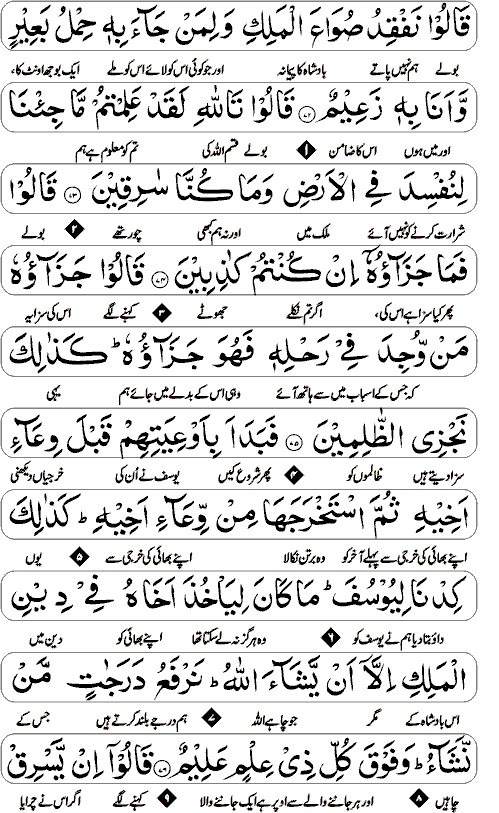 قَالُوْا نَفْقِدُ صُوَاعَ الْمَلِكِ وَلِمَنْ جَآءَ بِهٖ حِمْلُ بَعِيْرٍ
بولے ہم نہیں پاتے بادشاہ کا پیمانہ اور جو کوئی اس کو لائے اس کو ملے ایک بوجھ اونٹ کا،
وَّاَنَا بِهٖ زَعِيْمٌ ﴿۷۲﴾ قَالُوْا تَاللّٰهِ لَقَدْ عَلِمْتُمْ مَّا جِئْنَا
اور میں ہوں اس کا ضامن ۱ بولے قسم اللہ کی تم کو معلوم ہے ہم
لِنُفْسِدَ فِى الْاَرْضِ وَمَا كُنَّا سٰرِقِيْنَ ﴿۷۳﴾ قَالُوْا
شرارت کرنے کو نہیں آئے ملک میں اور نہ ہم کبھی چور تھے ۲ بولے
فَمَا جَزَآؤُهٗٓ اِنْ كُنْتُمْ كٰذِبِيْنَ ﴿۷۴﴾ قَالُوْا جَزَآؤُهٗ
پھر کیا سزا ہے اس کی، اگر تم نکلے جھوٹے ۳ کہنے لگے اس کی سزا یہ
مَنْ وُّجِدَ فِىْ رَحْلِهٖ فَهُوَ جَزَآؤُهٗ ؕ كَذٰلِكَ
کہ جس کے اسباب میں سے ہاتھ آئے وہی اس کے بدلے میں جائے ہم یہی
نَجْزِى الظّٰلِمِيْنَ ﴿۷۵﴾ فَبَدَاَ بِاَوْعِيَتِهِمْ قَبْلَ وِعَآءِ
سزا دیتے ہیں ظالموں کو ۴ پھر شروع کیں یوسف نے اُن کی خرجیاں دیکھنی
اَخِيْهِ ثُمَّ اسْتَخْرَجَهَا مِنْ وِّعَآءِ اَخِيْهِ ؕ كَذٰلِكَ
اپنے بھائی کی خرجی سے پہلے آخر کو وہ برتن نکالا اپنے بھائی کی خرجی سے ۵ یوں
كِدْنَا لِيُوْسُفَ ؕ مَا كَانَ لِيَاْخُذَ اَخَاهُ فِىْ دِيْنِ
داؤ بتا دیا ہم نے یوسف کو ۶ وہ ہرگز نہ لے سکتا تھا اپنے بھائی کو دین میں
الْمَلِكِ اِلَّاۤ اَنْ يَّشَآءَ اللّٰهُ ؕ نَرْفَعُ دَرَجٰتٍ مَّنْ
اس بادشاہ کے مگر جو چاہے اللہ ۷ ہم درجے بلند کرتے ہیں جس کے
نَّشَآءُ ؕ وَفَوْقَ كُلِّ ذِىْ عِلْمٍ عَلِيْمٌ ﴿۷۶﴾ قَالُوْۤا اِنْ يَّسْرِقْ
چاہیں ۸ اور ہر جاننے والے سے اوپر ہے ایک جاننے والا ۹ کہنے لگے اگر اس نے چرایا